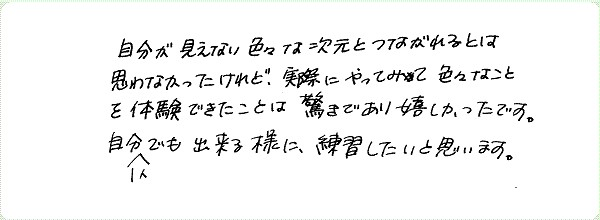 自分が見えない色々な次元とつながれるとは
思わなかったけれど、実際にやってみて色々なこと
を体験できたことは驚きであり嬉しかったです。
自分一人でも出来る様に、練習したいと思います。